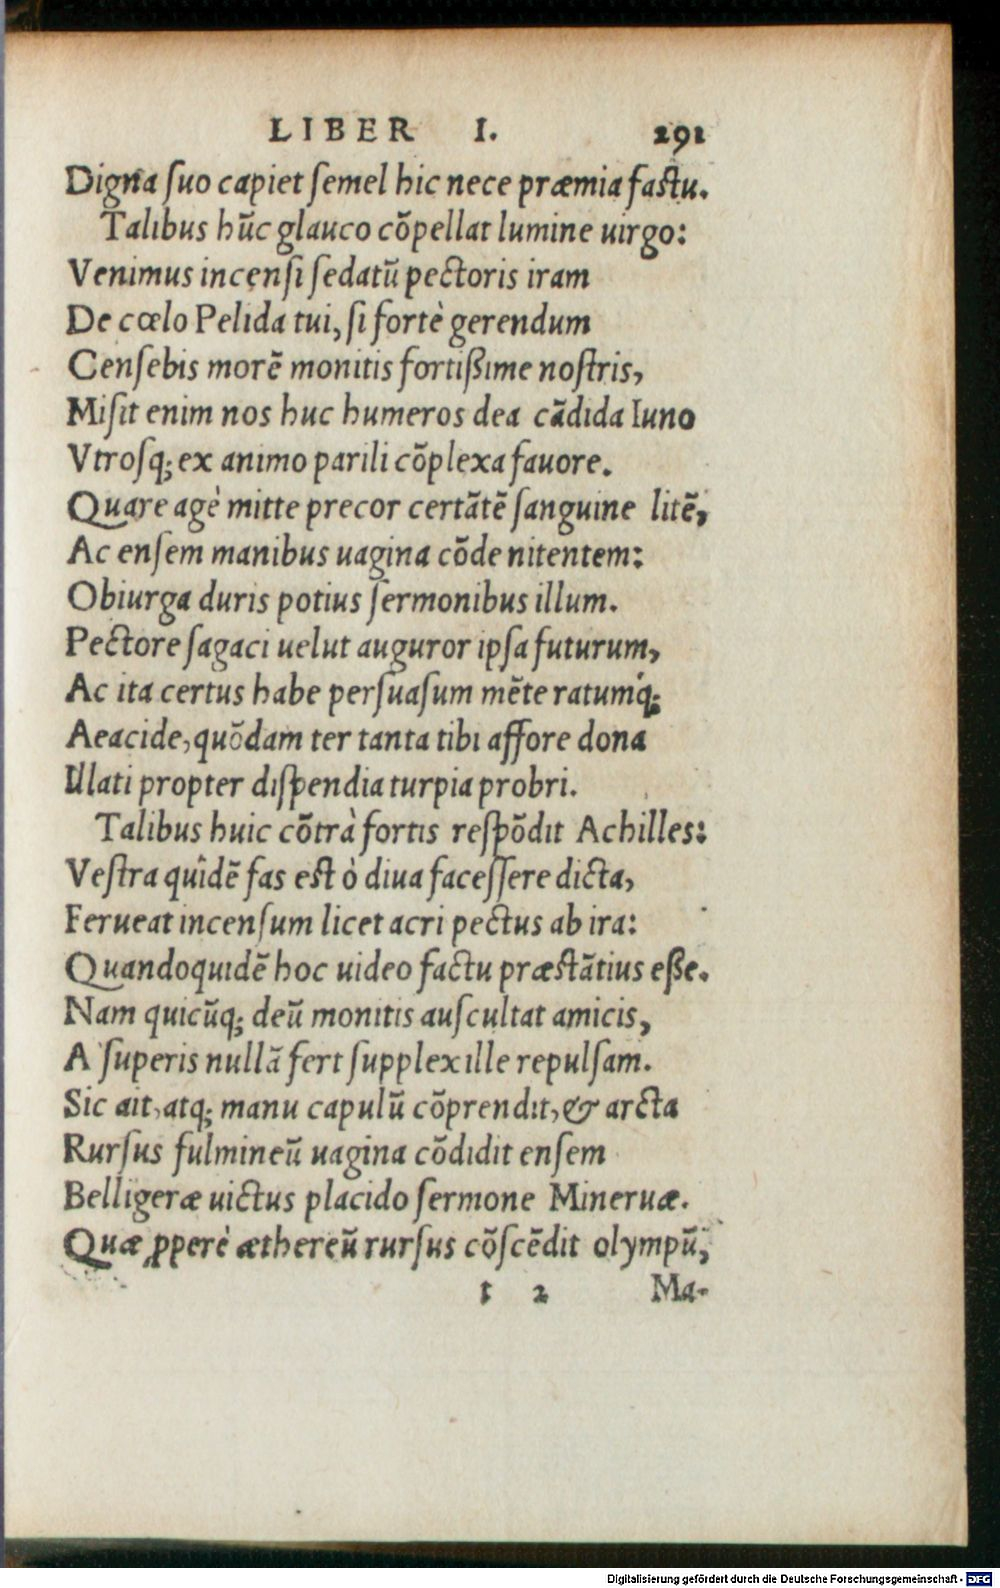 LIBER I. 291
Digna ſuo capiet ſemel hic nece præmia factu.
Talibus hūc glauco cōpellat lumine uirgo:
Venimus incenſi ſedatū pectoris iram
De cœlo Pelida tui, ſi fortè gerendum
Cenſebis morē monitis fortißime noſtris,
Miſit enim nos huc humeros dea cādida Iuno
Vtroſq; ex animo parili cōplexa fauore.
Quare agè mitte precor certātē ſanguine litē,
Ac enſem manibus uagina cōde nitentem:
Obiurga duris potius ſermonibus illum.
Pectore ſagaci uelut auguror ipſa futurum,
Ac ita certus habe perſuaſum mēte ratumq́;
Aeacide, quōdam ter tanta tibi affore dona
Illati propter diſpendia turpia probri.
Talibus huic cōtrà fortis reſpōdit Achilles:
Veſtra quidē fas eſt ò diua faceſſere dicta,
Ferueat incenſum licet acri pectus ab ira:
Quandoquidē hoc uideo factu præſtātius eße.
Nam quicūq; deū monitis auſcultat amicis,
A ſuperis nullā fert ſupplex ille repulſam.
Sic ait, atq; manu capulū cōprendit, & arcta
Rurſus fulmineū uagina cōdidit enſem
Belligeræ uictus placido ſermone Mineruæ.
Quæ ꝓperè æthereū rurſus cōſcēdit olympū,
t 2 Ma-
Digitalisierung gefördert durch die Deutsche Forschungsgemeinschaft - DFG